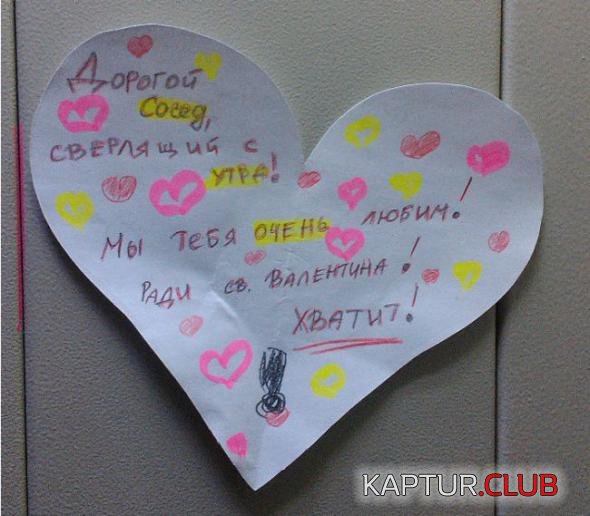 Дорогой
Сосед,
сверлящий с
утра!
Мы тебя очень любим!
Ради св. Валентина!
Хватит!
!
KAPTUR.CLUB